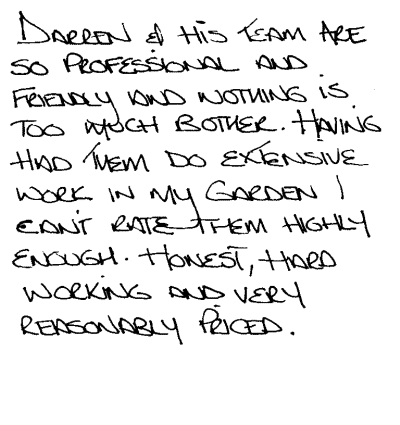 DARREN & HIS TEAM ARE
SO PROFESSIONAL AND
FRIENDLY AND NOTHING IS
TOO MUCH BOTHER. HAVING
HAD THEM DO EXTENSIVE
WORK IN MY GARDEN I
CAN'T RATE THEM HIGHLY
ENOUGH. HONEST, HARD
WORKING AND VERY
REASONABLY PRICED.